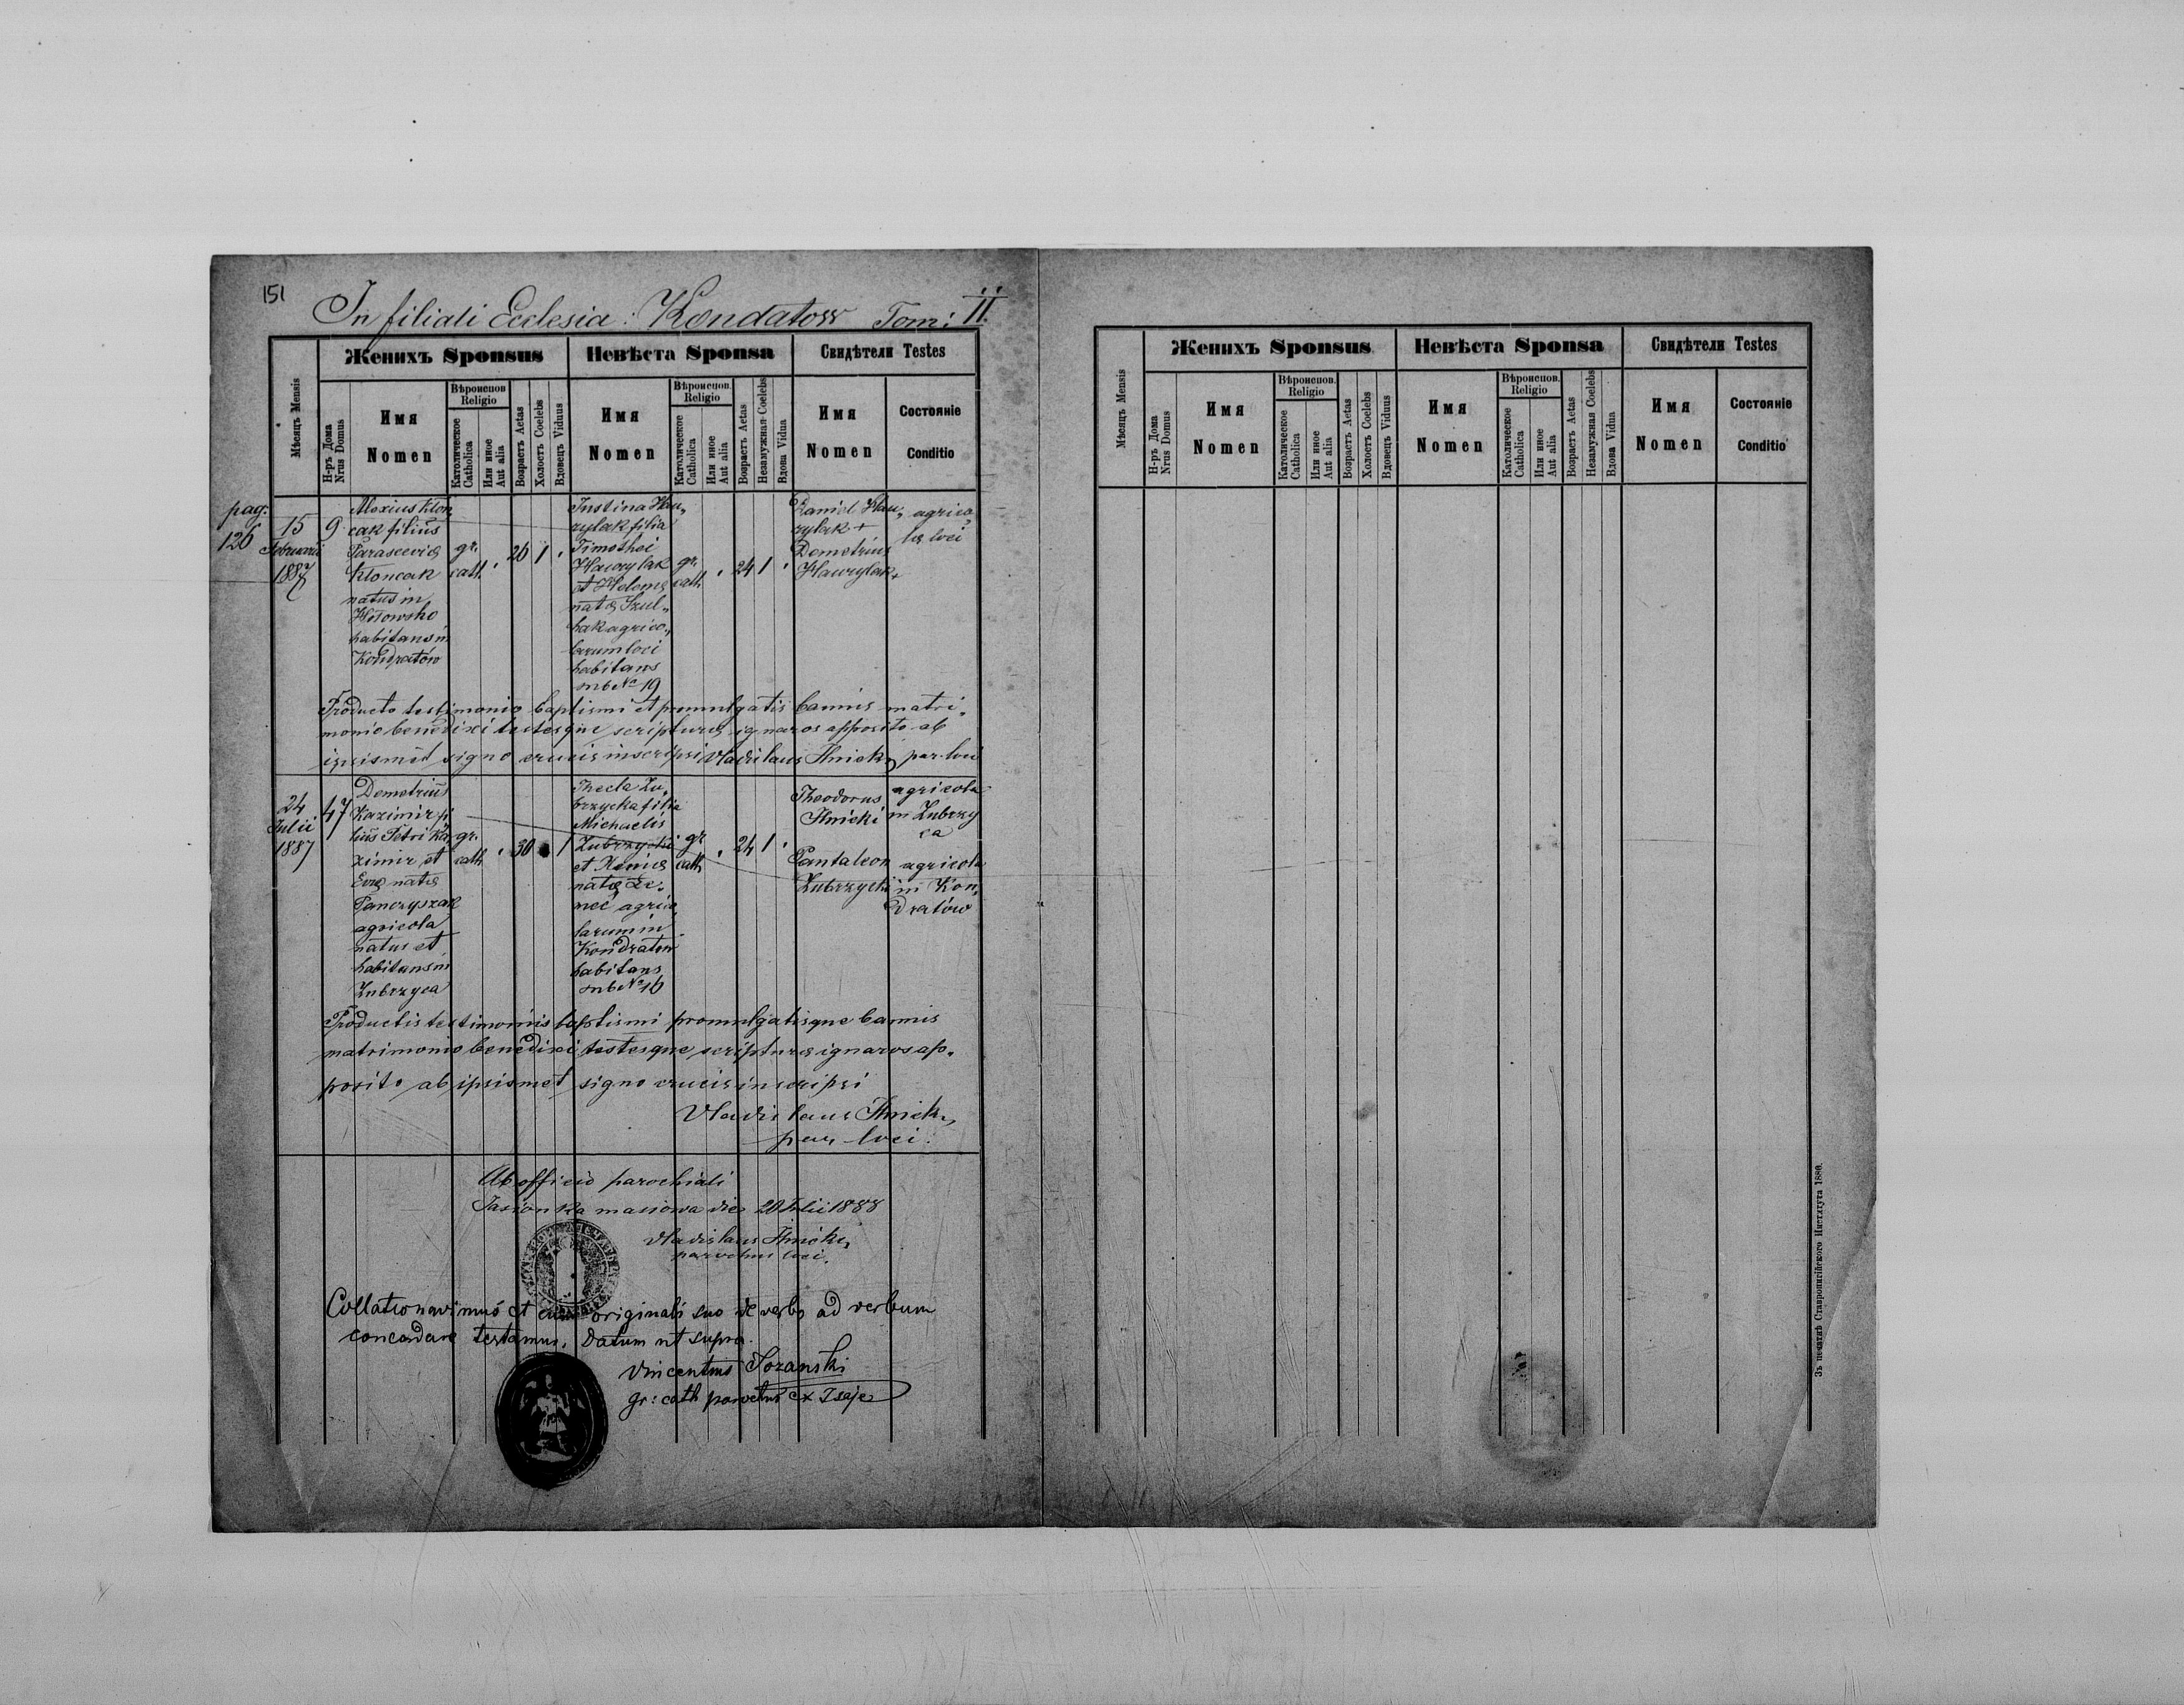 151
In filiali Ecclesia: Kondatow Tom: II.
Мѣсяцъ Mensis
Женихъ Sponsus
Невѣста Sponsa
Свидѣтели Testes
Н-ръ Дома Nrus Domus
Имя Nomen
Вѣроиспов. Religio
Католическое Catholica
Или иное Aut alia
Возрастъ Aetas
Холостъ Coelebs
Вдовецъ Viduus
Имя Nomen
Вѣроиспов. Religio
Католическое Catholica
Или иное Aut alia
Возрастъ Aetas
Незамужная Coelebs
Вдова Vidua
Имя Nomen
Состояніе Conditio
pag. 126
15 Februarii 1887
9
Alexius Kłon„
cak filius
Parasceviæ
Kłoncak
natus in
habitans in
Kondratów
gr. cath.
26
1
Justina Hau„
rylak filia
Timothei
Hawrylak
et Helenæ
natæ Szul„
hak agrico„
larum loci
habitans
sub № 19
gr. cath.
24
1
Daniel Hau„
rylak +
Demetrius
Hawrylak +
agrico„
læ loci
Producto testimonio baptismi et promulgatis bannis matri„
monio benedixi testesque scripturæ ignaros apposito ab
ipsismet signo crucis inscripsi Vladislaus Ilnicki par. loci
24 Julii 1887
47
Demetrius
Kazimir fi
lius Petri Ka
zimir et
Evæ natæ
Pancryszak
agricola
natus et
habitans in
Zubrzyca
gr. cath.
30
1
Thecla Zu„
brzycka filia
Michaelis
Zubrzycki
et Xeniæ
natæ
agrico„
larum in
Kondratow
habitans
sub № 16
gr. cath.
24
1
Theodorus
Ilnicki
agricola
in Zubrzy
ca
Pantaleon
Zubrzycki
agricola
in Kon„
dratów
Productis testimoniis baptismi promulgatisque bannis
matrimonio benedixi testesque scripturæ ignaros ap„
posito ab ipsismet signo crucis inscripsi
Vladislaus Ilnicki,
par. loci.
Ab officio parochiali
Jasionka masiowa die 20 Julii 1888
Vladislaus Ilnicki,
parochus loci.
Collationavimus et cum originali suo de verbo ad verbum
concordare testamur. Datum ut supra.
Vincentius Tozanski
gr: cath parochus ex Isaje
Мѣсяцъ Mensis
Женихъ Sponsus
Невѣста Sponsa
Свидѣтели Testes
Н-ръ Дома Nrus Domus
Имя Nomen
Вѣроиспов. Religio
Католическое Catholica
Или иное Aut alia
Возрастъ Aetas
Холостъ Coelebs
Вдовецъ Viduus
Имя Nomen
Вѣроиспов. Religio
Католическое Catholica
Или иное Aut alia
Возрастъ Aetas
Незамужная Coelebs
Вдова Vidua
Имя Nomen
Состояніе Conditio
Зъ печатнѣ Ставропигійского Института 1880.